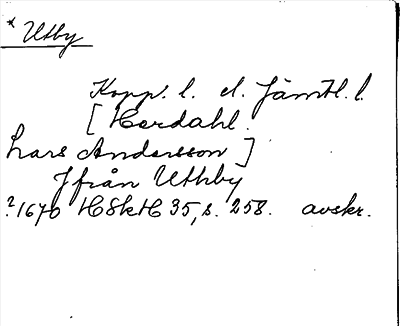 * Utby
Kopp. l. d. Jämtl. l.
[Herdahl.
Lars Andersson]
J från Uthby
?1670 HSkH 35, s. 258. avskr.